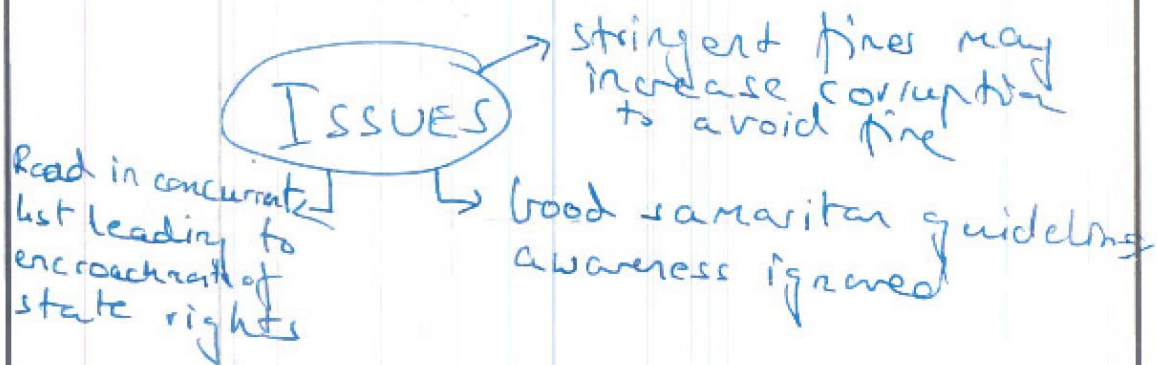 ISSUES
stringent fines may
increase corruption
to avoid fine
Road in concurrent
list leading to
encroachment of
state rights
Good samaritan guidelines
awareness ignored